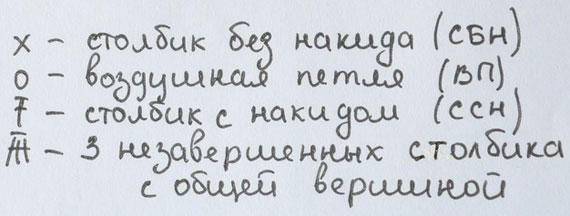 x – столбик без накида (СБН)
о – воздушная петля (ВП)
† – столбик с накидом (ССН)
– 3 незавершенных столбика
с общей вершиной